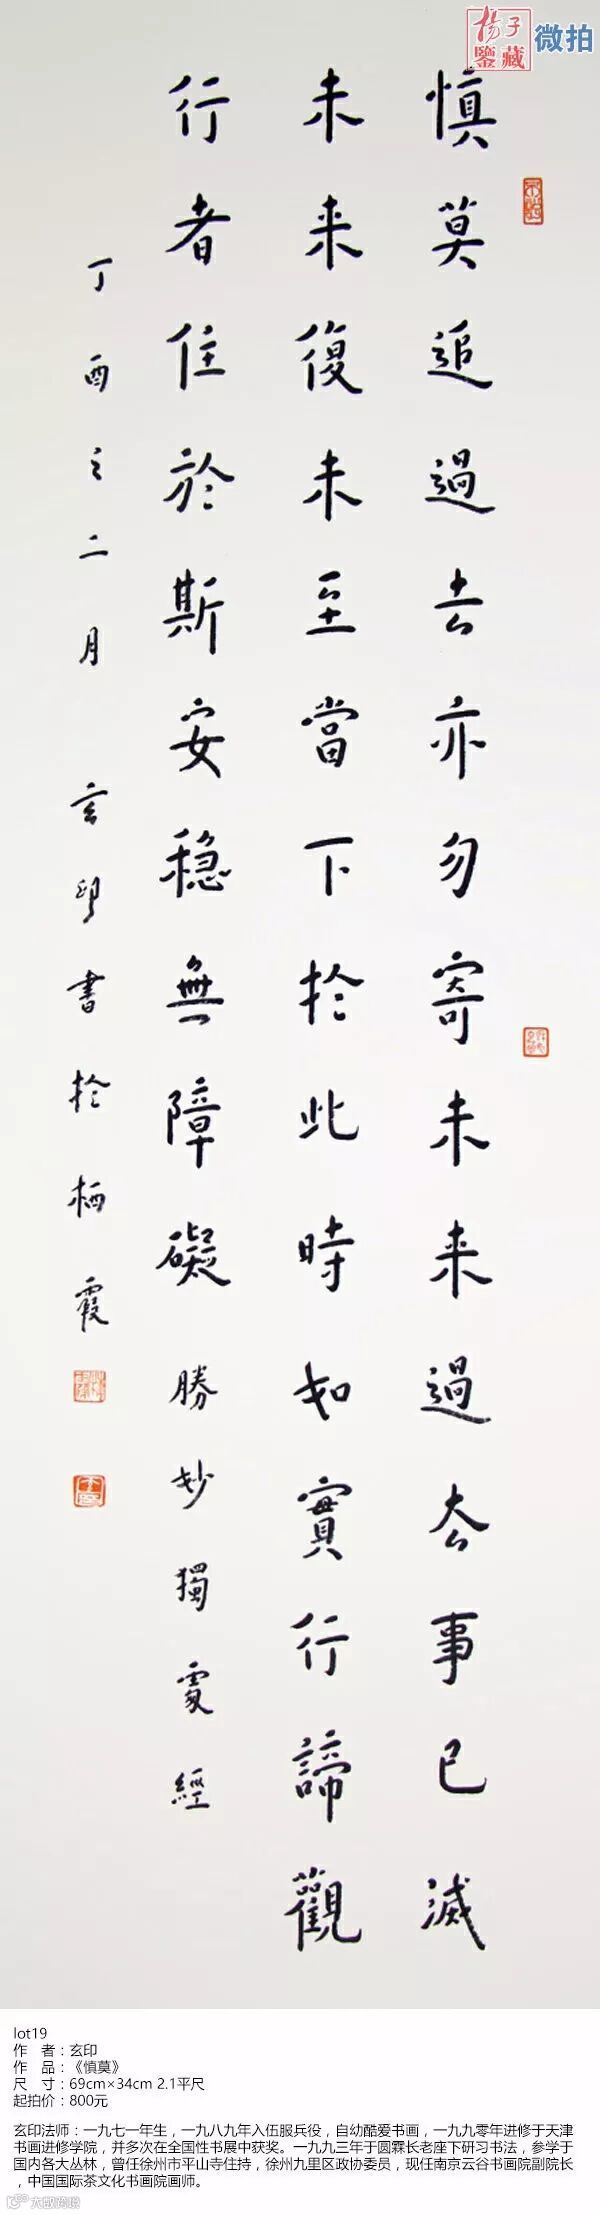 揚子
鑒藏
微拍
慎莫追過去亦勿寄未来過去事已滅
未来復未至當下於此時如實行諦觀
行者住於斯安穏無障礙勝妙獨處經
丁酉之二月玄印書於栖霞
lot19
作 者：玄印
作 品：《慎莫》
尺 寸：69cm×34cm 2.1平尺
起拍价：800元
玄印法师：一九七一年生，一九八九年入伍服兵役，自幼酷爱书画，一九九零年进修于天津
书画进修学院，并多次在全国性书展中获奖。一九九三年于圆霖长老座下研习书法，参学于
国内各大丛林，曾任徐州市平山寺住持，徐州九里区政协委员，现任南京云谷书画院副院长
，中国国际茶文化书画院画师。